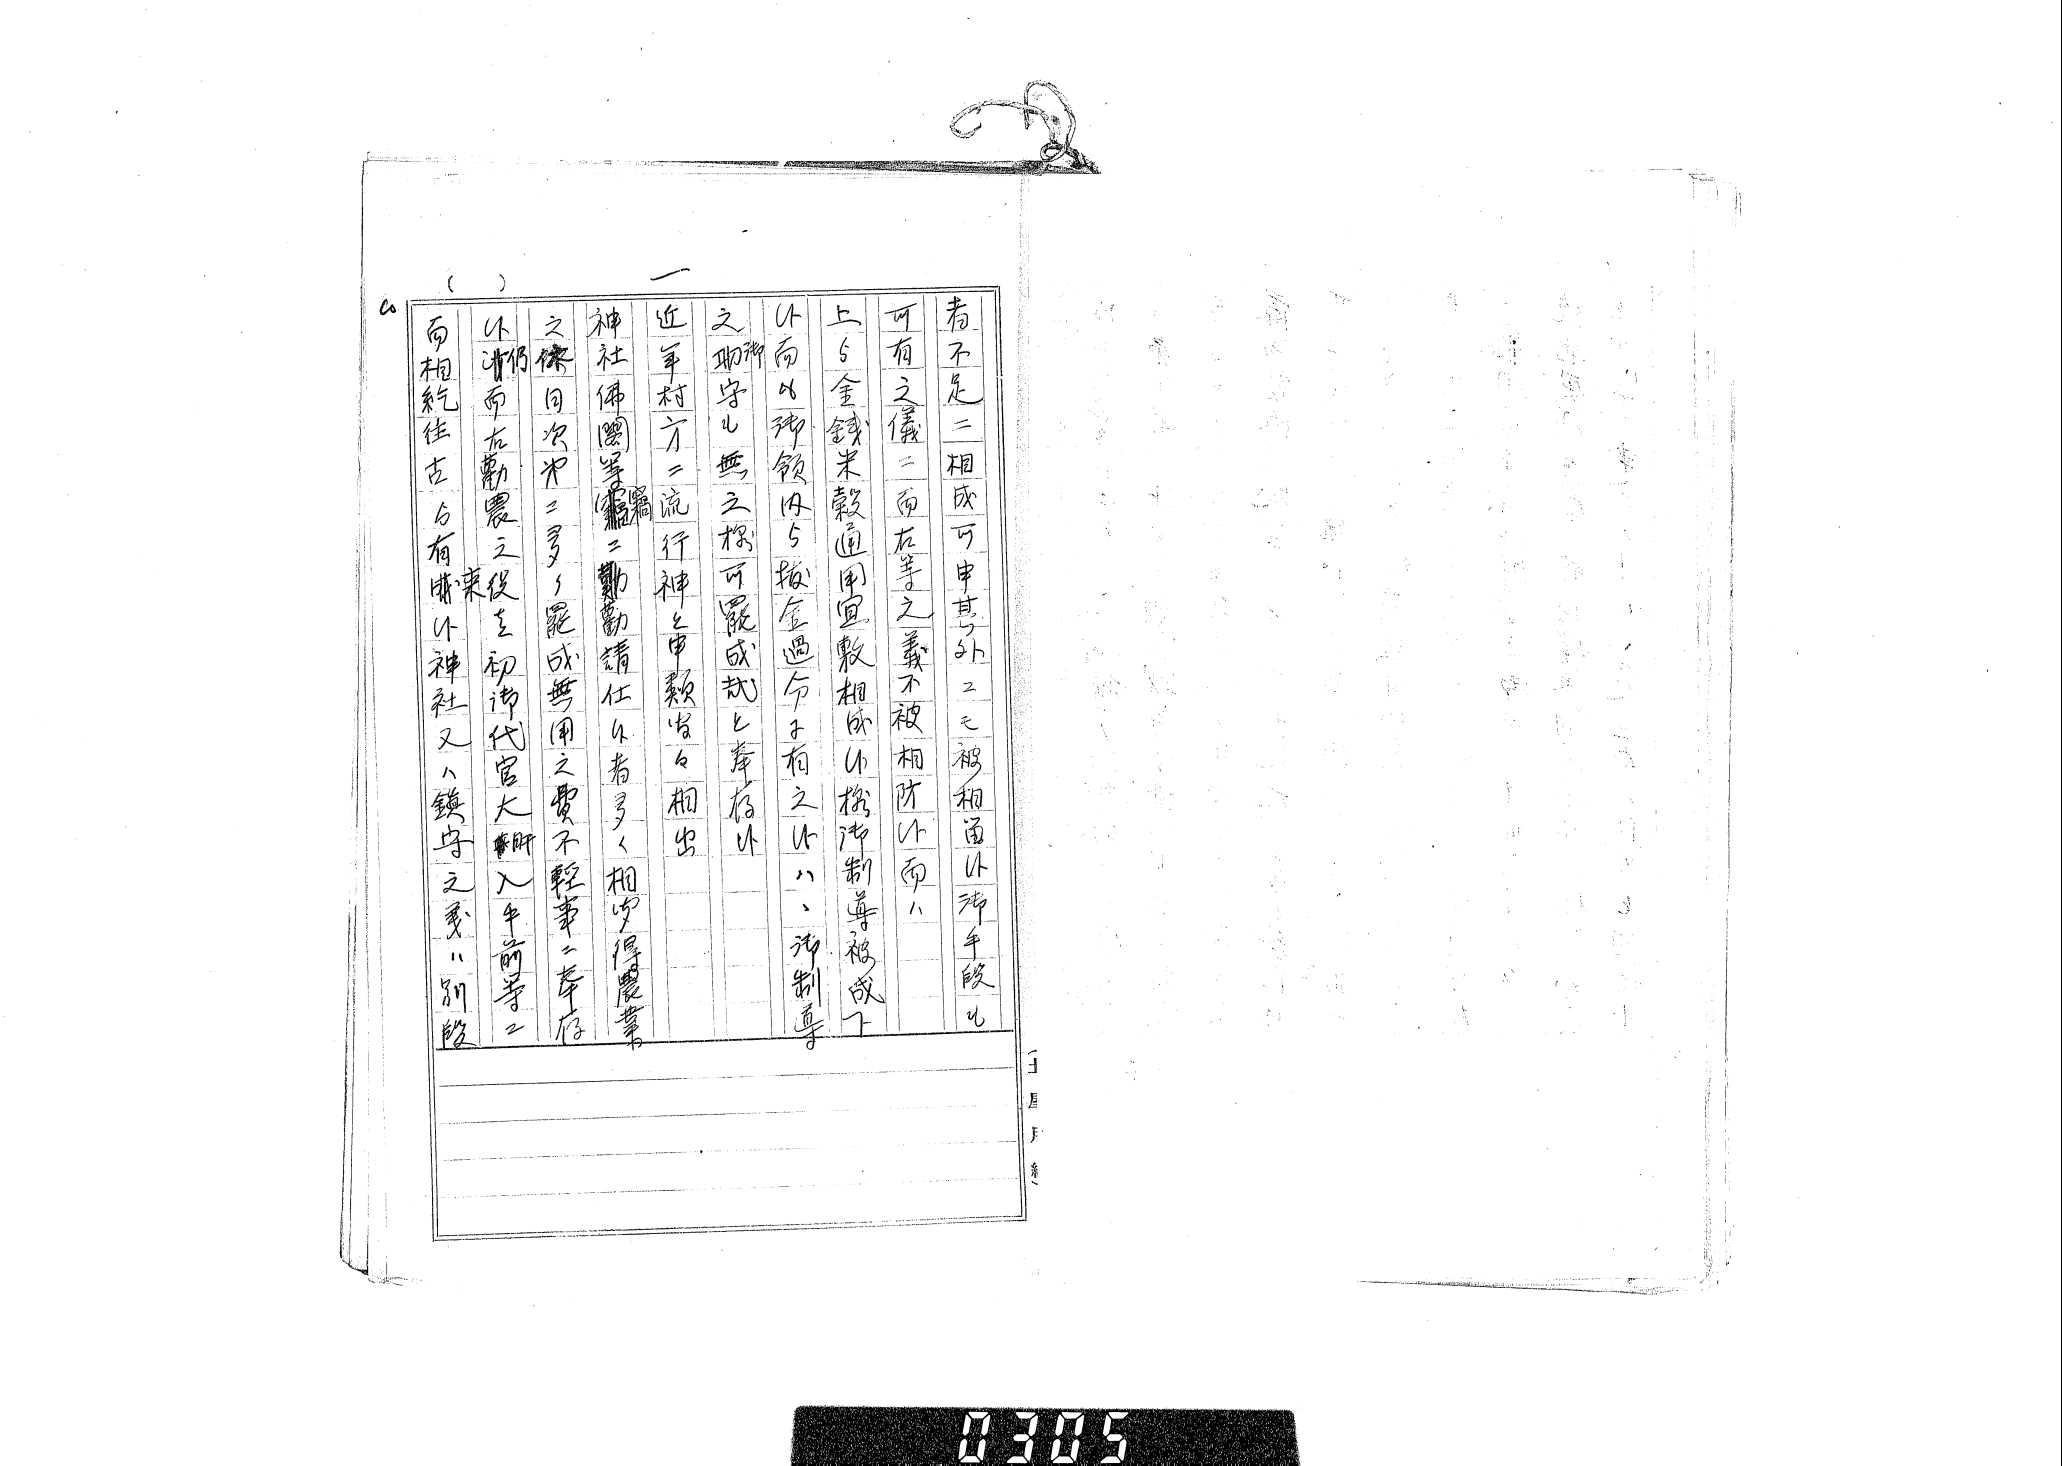 一
( )
者不足ニ相成可申其外ニモ被相通候御手段も
可有之儀ニ而右等之義不被相防候而ハ
上ゟ金銭米穀通用宜敷相成候様御制導被成下
候而も御領内ゟ拔金過分ニ有之候ハヽ御制導
之御助守も無之様可罷成哉と奉存候
近年村方ニ流行神と申類時々相出
神社佛閣等窩ニ勧請仕候者多く相心得農業
之休日次第ニ多く罷成無用之費不軽事ニ奉存
候仍而右勸農之役を初御代官大肝入手前等ニ
而相糺往古ゟ有来候神社又ハ鎮守之義ハ別段
0305